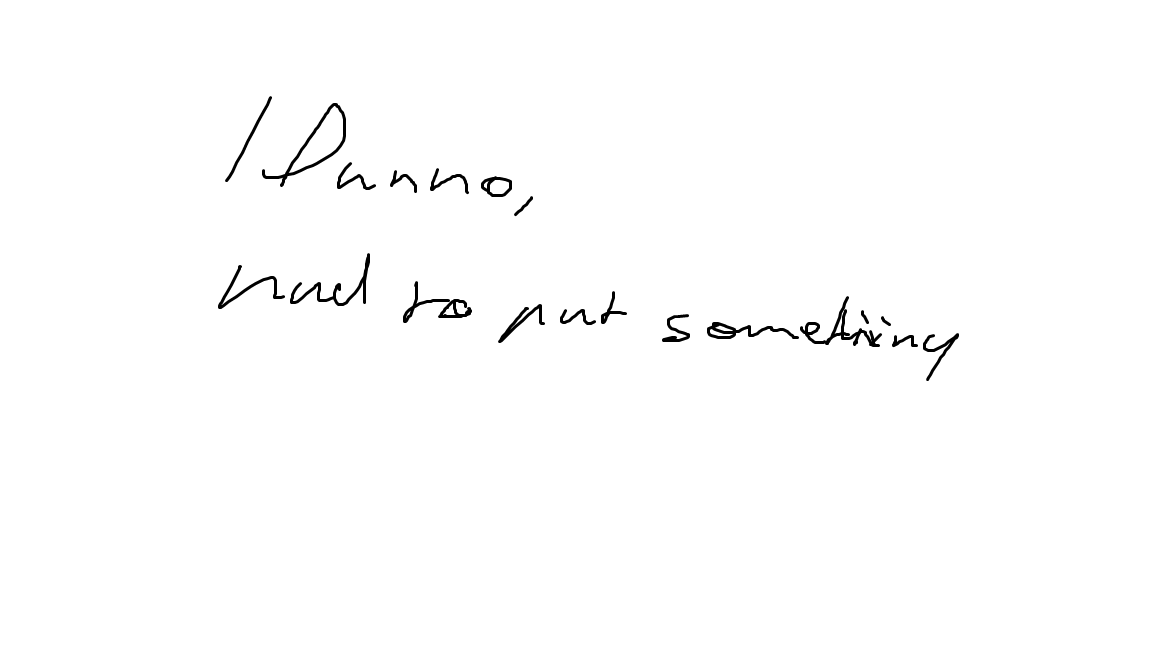 I Dunno,
had to put something